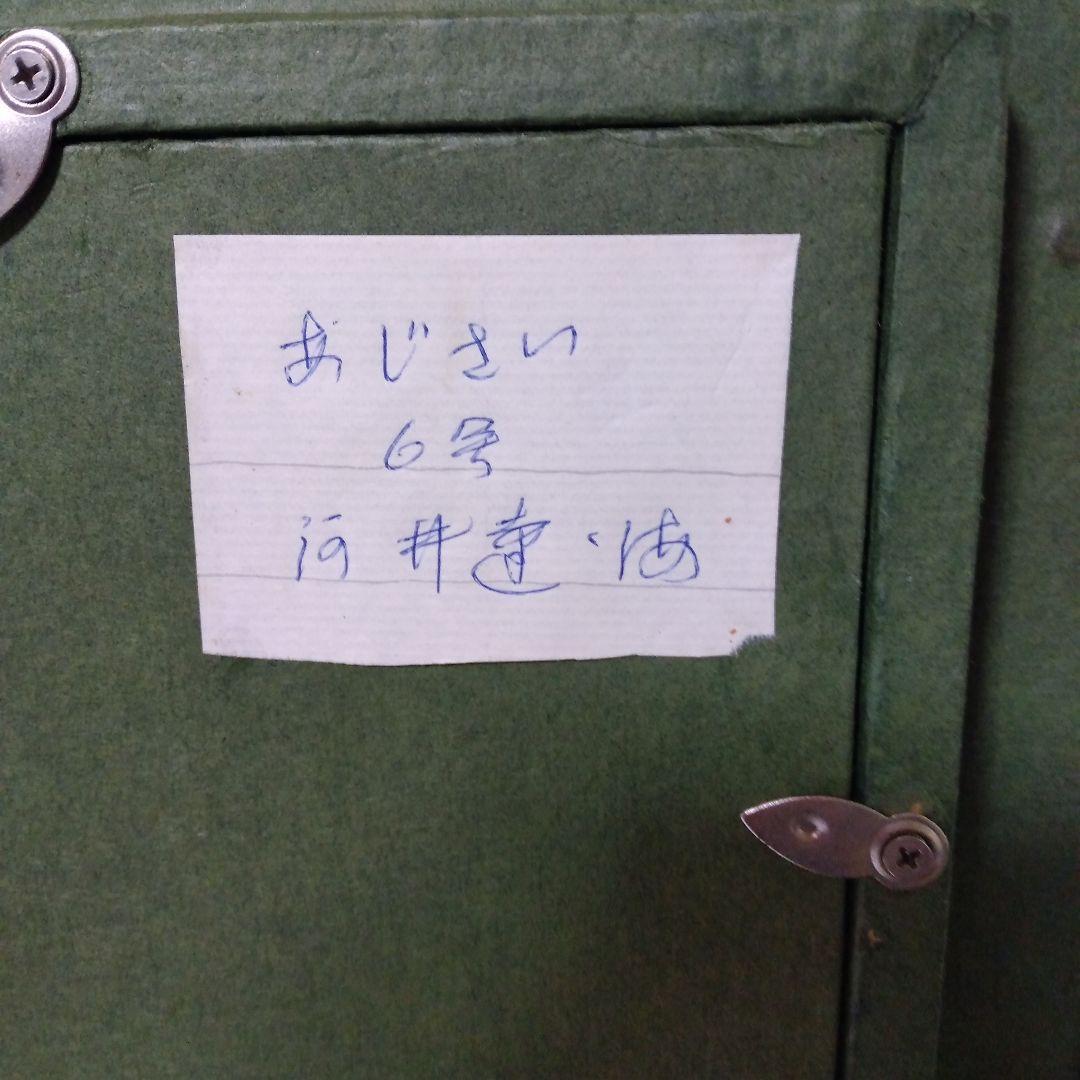 あじさい
6号
河井達・海